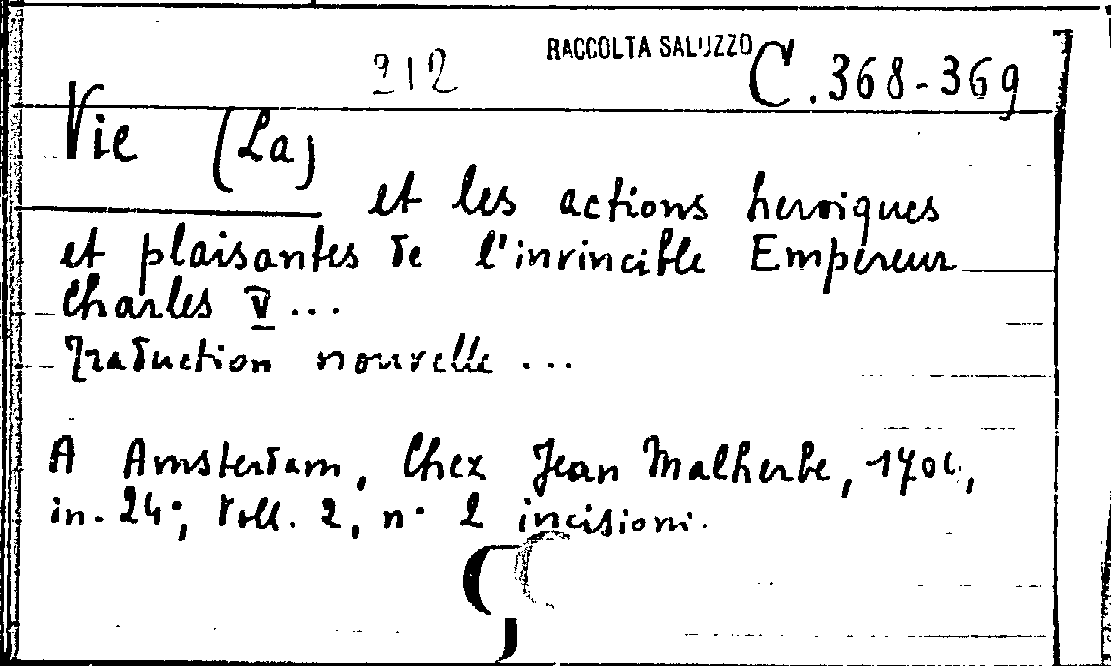 RACCOLTA SALUZZO
212 C.368-369
Vie (La)
et les actions heroiques
et plaisantes de l'invincible Empereur
Charles V...
Traduction nouvelle ...
A Amsterdam, Chez Jean Malherbe,
in. 24°, Voll. 2, n° 2 incisioni.